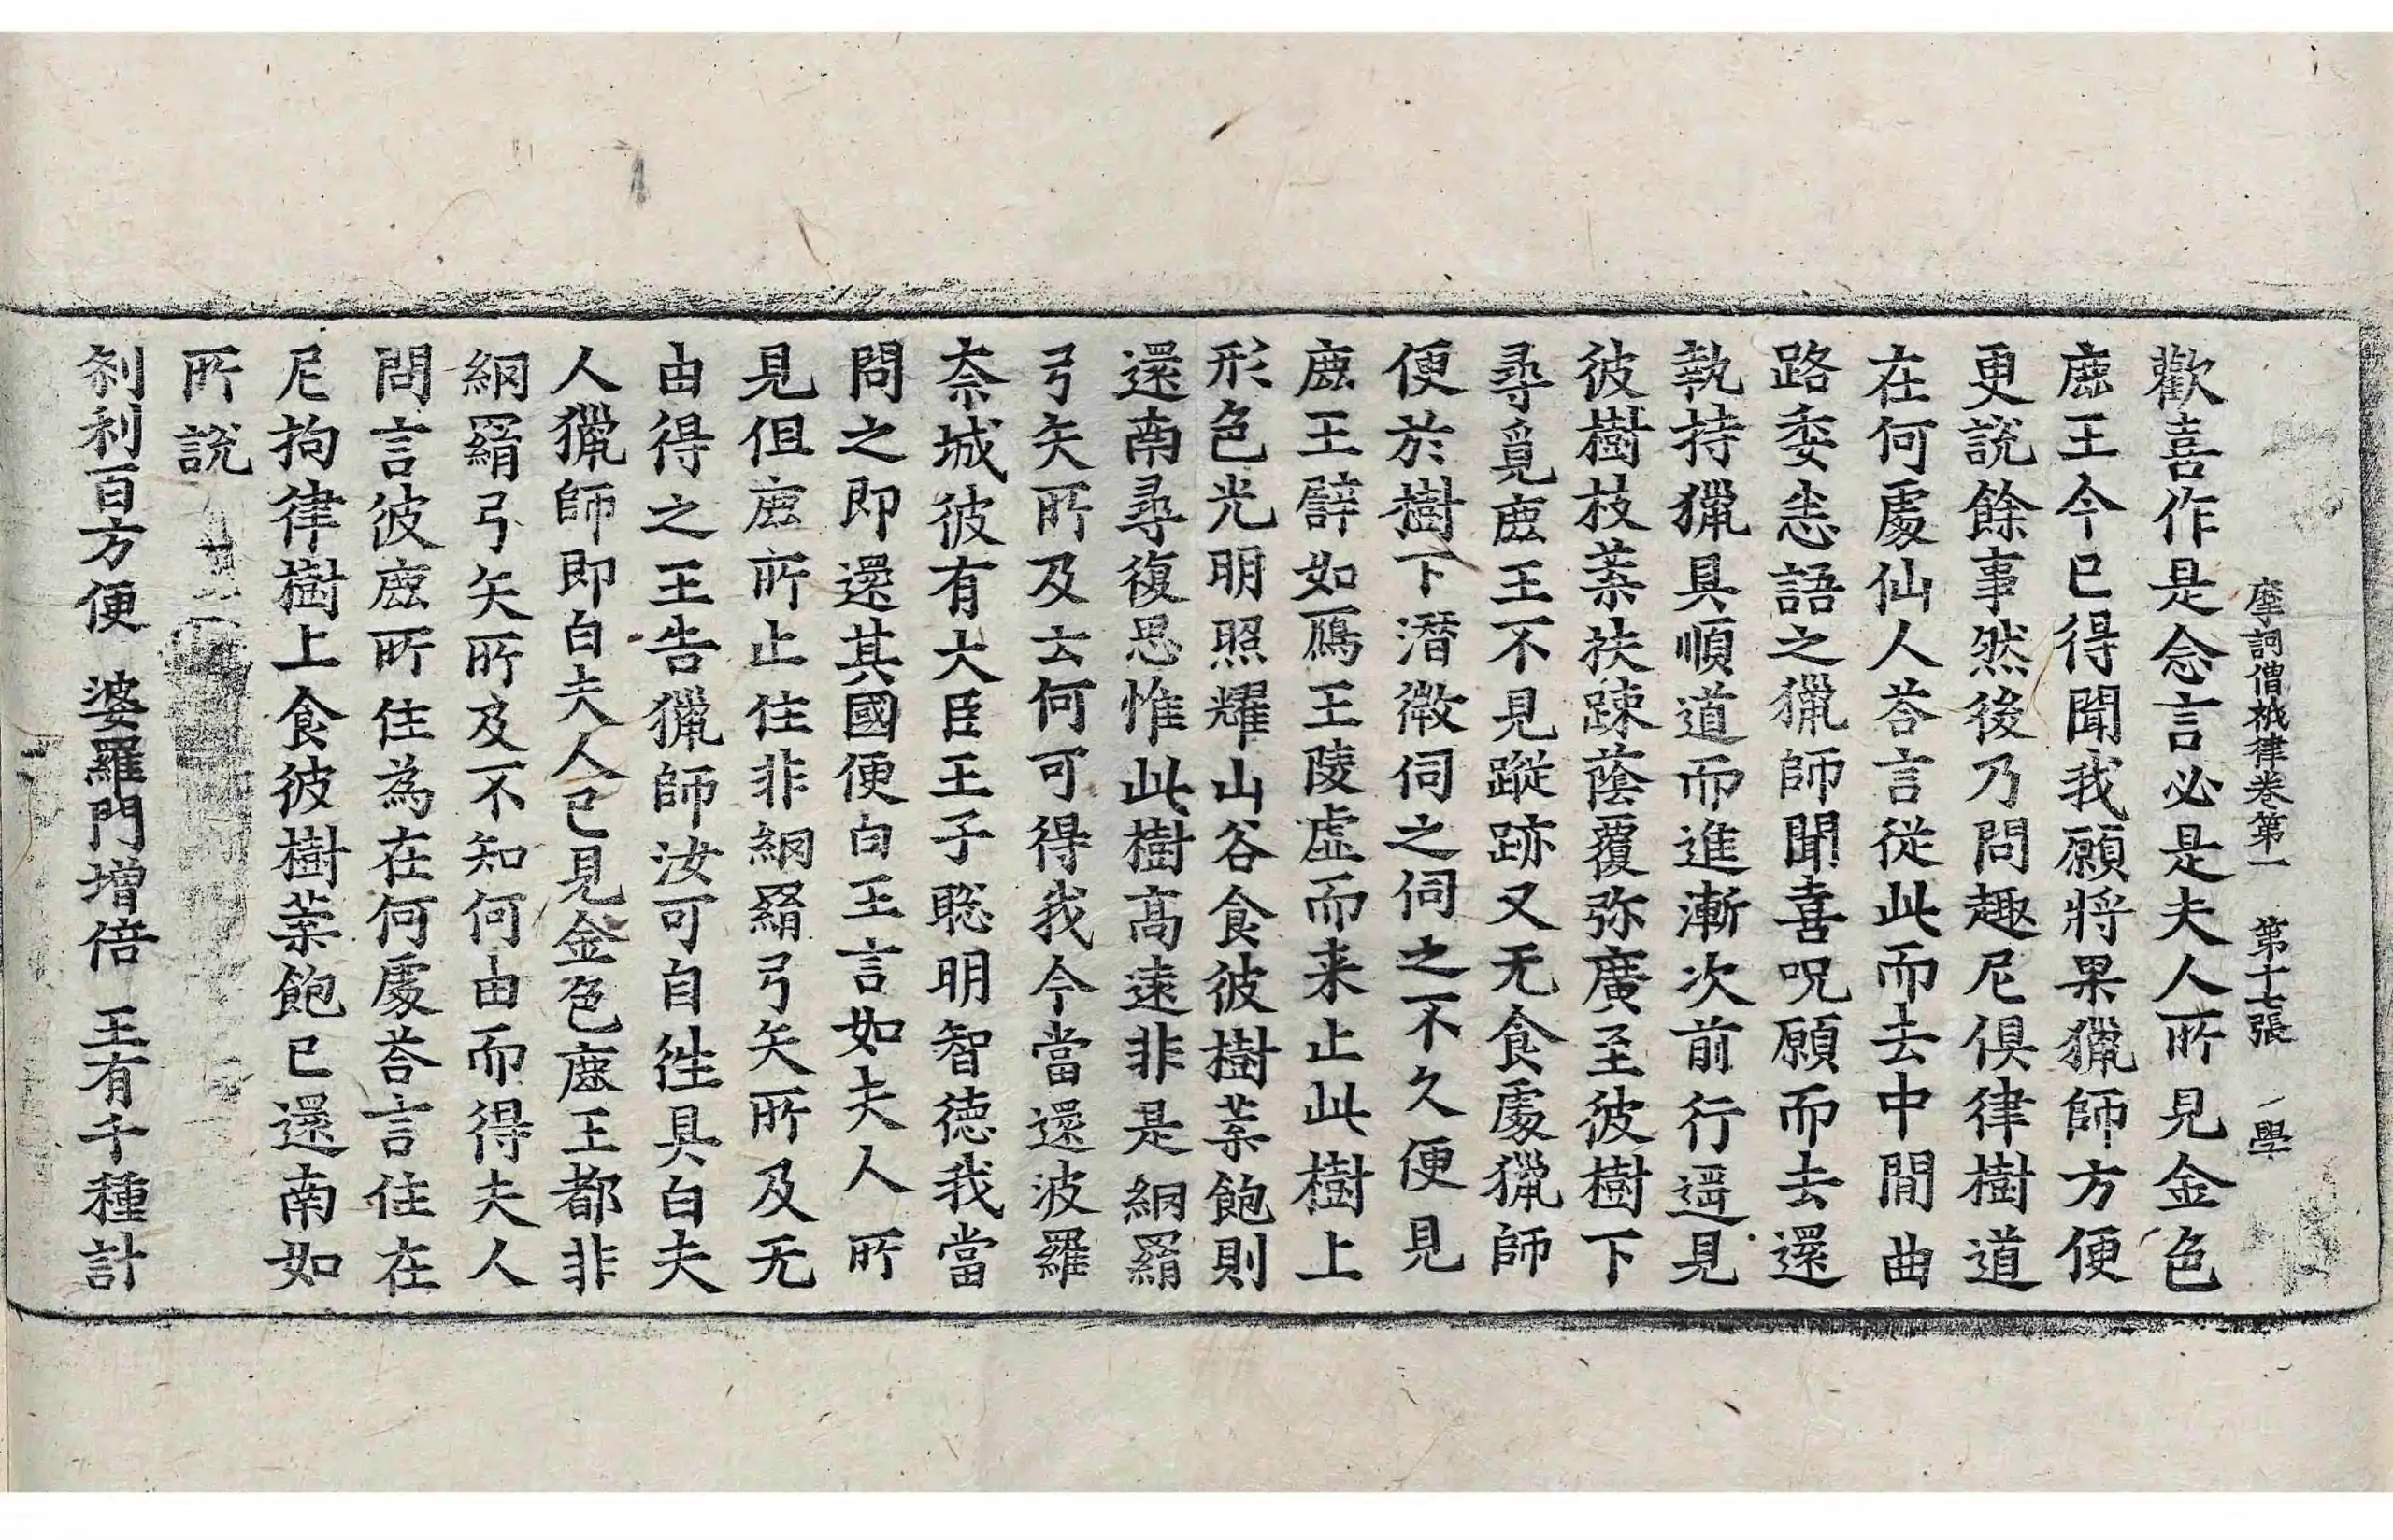 摩訶僧祇律卷第一 第十七張 學
歡喜作是念言必是夫人所見金色
鹿王今已得聞我願將果獵師方便
更說餘事然後乃問趣尼俱律樹道
在何處仙人荅言從此而去中閒曲
路委悉語之獵師聞喜呪願而去還
執持獵具順道而進漸次前行遥見
彼樹枝葉扶踈蔭覆弥廣至彼樹下
尋覓鹿王不見蹤跡又无食處獵師
便於樹下潛微伺之伺之不久便見
鹿王譬如鴈王陵虛而来止此樹上
形色光明照耀山谷食彼樹葉飽則
還南尋復思惟此樹高遠非是網羂
弓矢所及云何可得我今當還波羅
奈城彼有大臣王子聡明智德我當
問之即還其國便白王言如夫人所
見但鹿所止住非網羂弓矢所及无
由得之王告獵師汝可自徃具白夫
人獵師即白夫人已見金色鹿王都非
網羂弓矢所及不知何由而得夫人
問言彼鹿所住為在何處荅言住在
尼拘律樹上食彼樹葉飽已還南如
所說
刹利百方便 婆羅門增倍 王有千種計